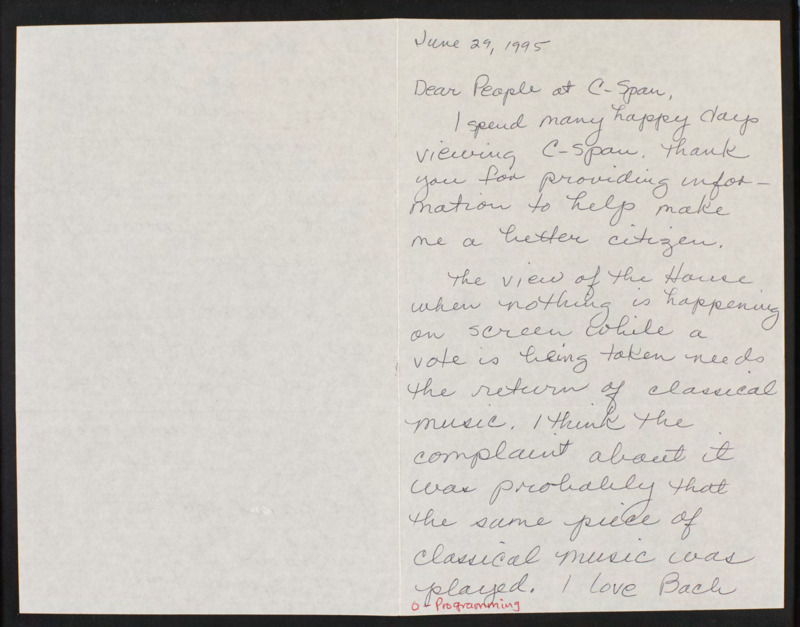 June 29, 1995
Dear People at C-Span,
I spend many happy days
viewing C-Span. Thank
you for providing infor-
mation to help make
me a better citizen.
The view of the House
when nothing is happening
on screen while a
vote is being taken needs
the return of classical
music. I think the
complaint about it
was probably that
the same piece of
classical music was
played. I love Bach
O - Programming